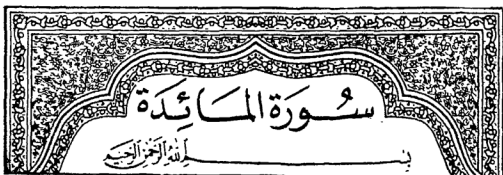 سُورَةُ المَائِدَة
بِسْمِ اللهِ الرَّحْمٰنِ الرَّحِيمِ